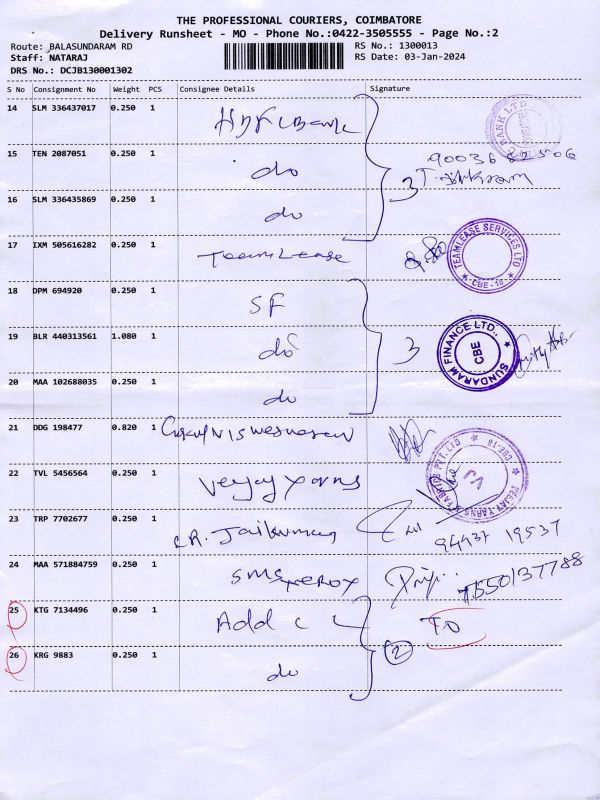 THE PROFESSIONAL COURIERS, COIMBATORE
Delivery Runsheet - MO - Phone No.:0422-3505555 - Page No.:2
Route: BALASUNDARAM RD RS No.: 1300013
Staff: NATARAJ RS Date: 03-Jan-2024
DRS No.: DCJB130001302
S No Consignment No Weight PCS Consignee Details Signature
14 SLM 336437017 0.250 1 HDFC Bank
15 TEN 2087051 0.250 1 do 3
16 SLM 336435869 0.250 1 do
17 IXM 505616282 0.250 1 TeamLease TEAMLEASE SERVICES LTD CBE - 18
18 DPM 694920 0.250 1 SF
19 BLR 440313561 1.080 1 do 3 SUNDARAM FINANCE LTD., CBE
20 MAA 102688035 0.250 1 do
21 DDG 198477 0.820 1
22 TVL 5456564 0.250 1 Vejay Yarns
23 TRP 7702677 0.250 1 Jaikumar 19537
24 MAA 571884759 0.250 1 SMS Xerox 7550137788
25 KTG 7134496 0.250 1 Add C TO
26 KRG 9883 0.250 1 do 2